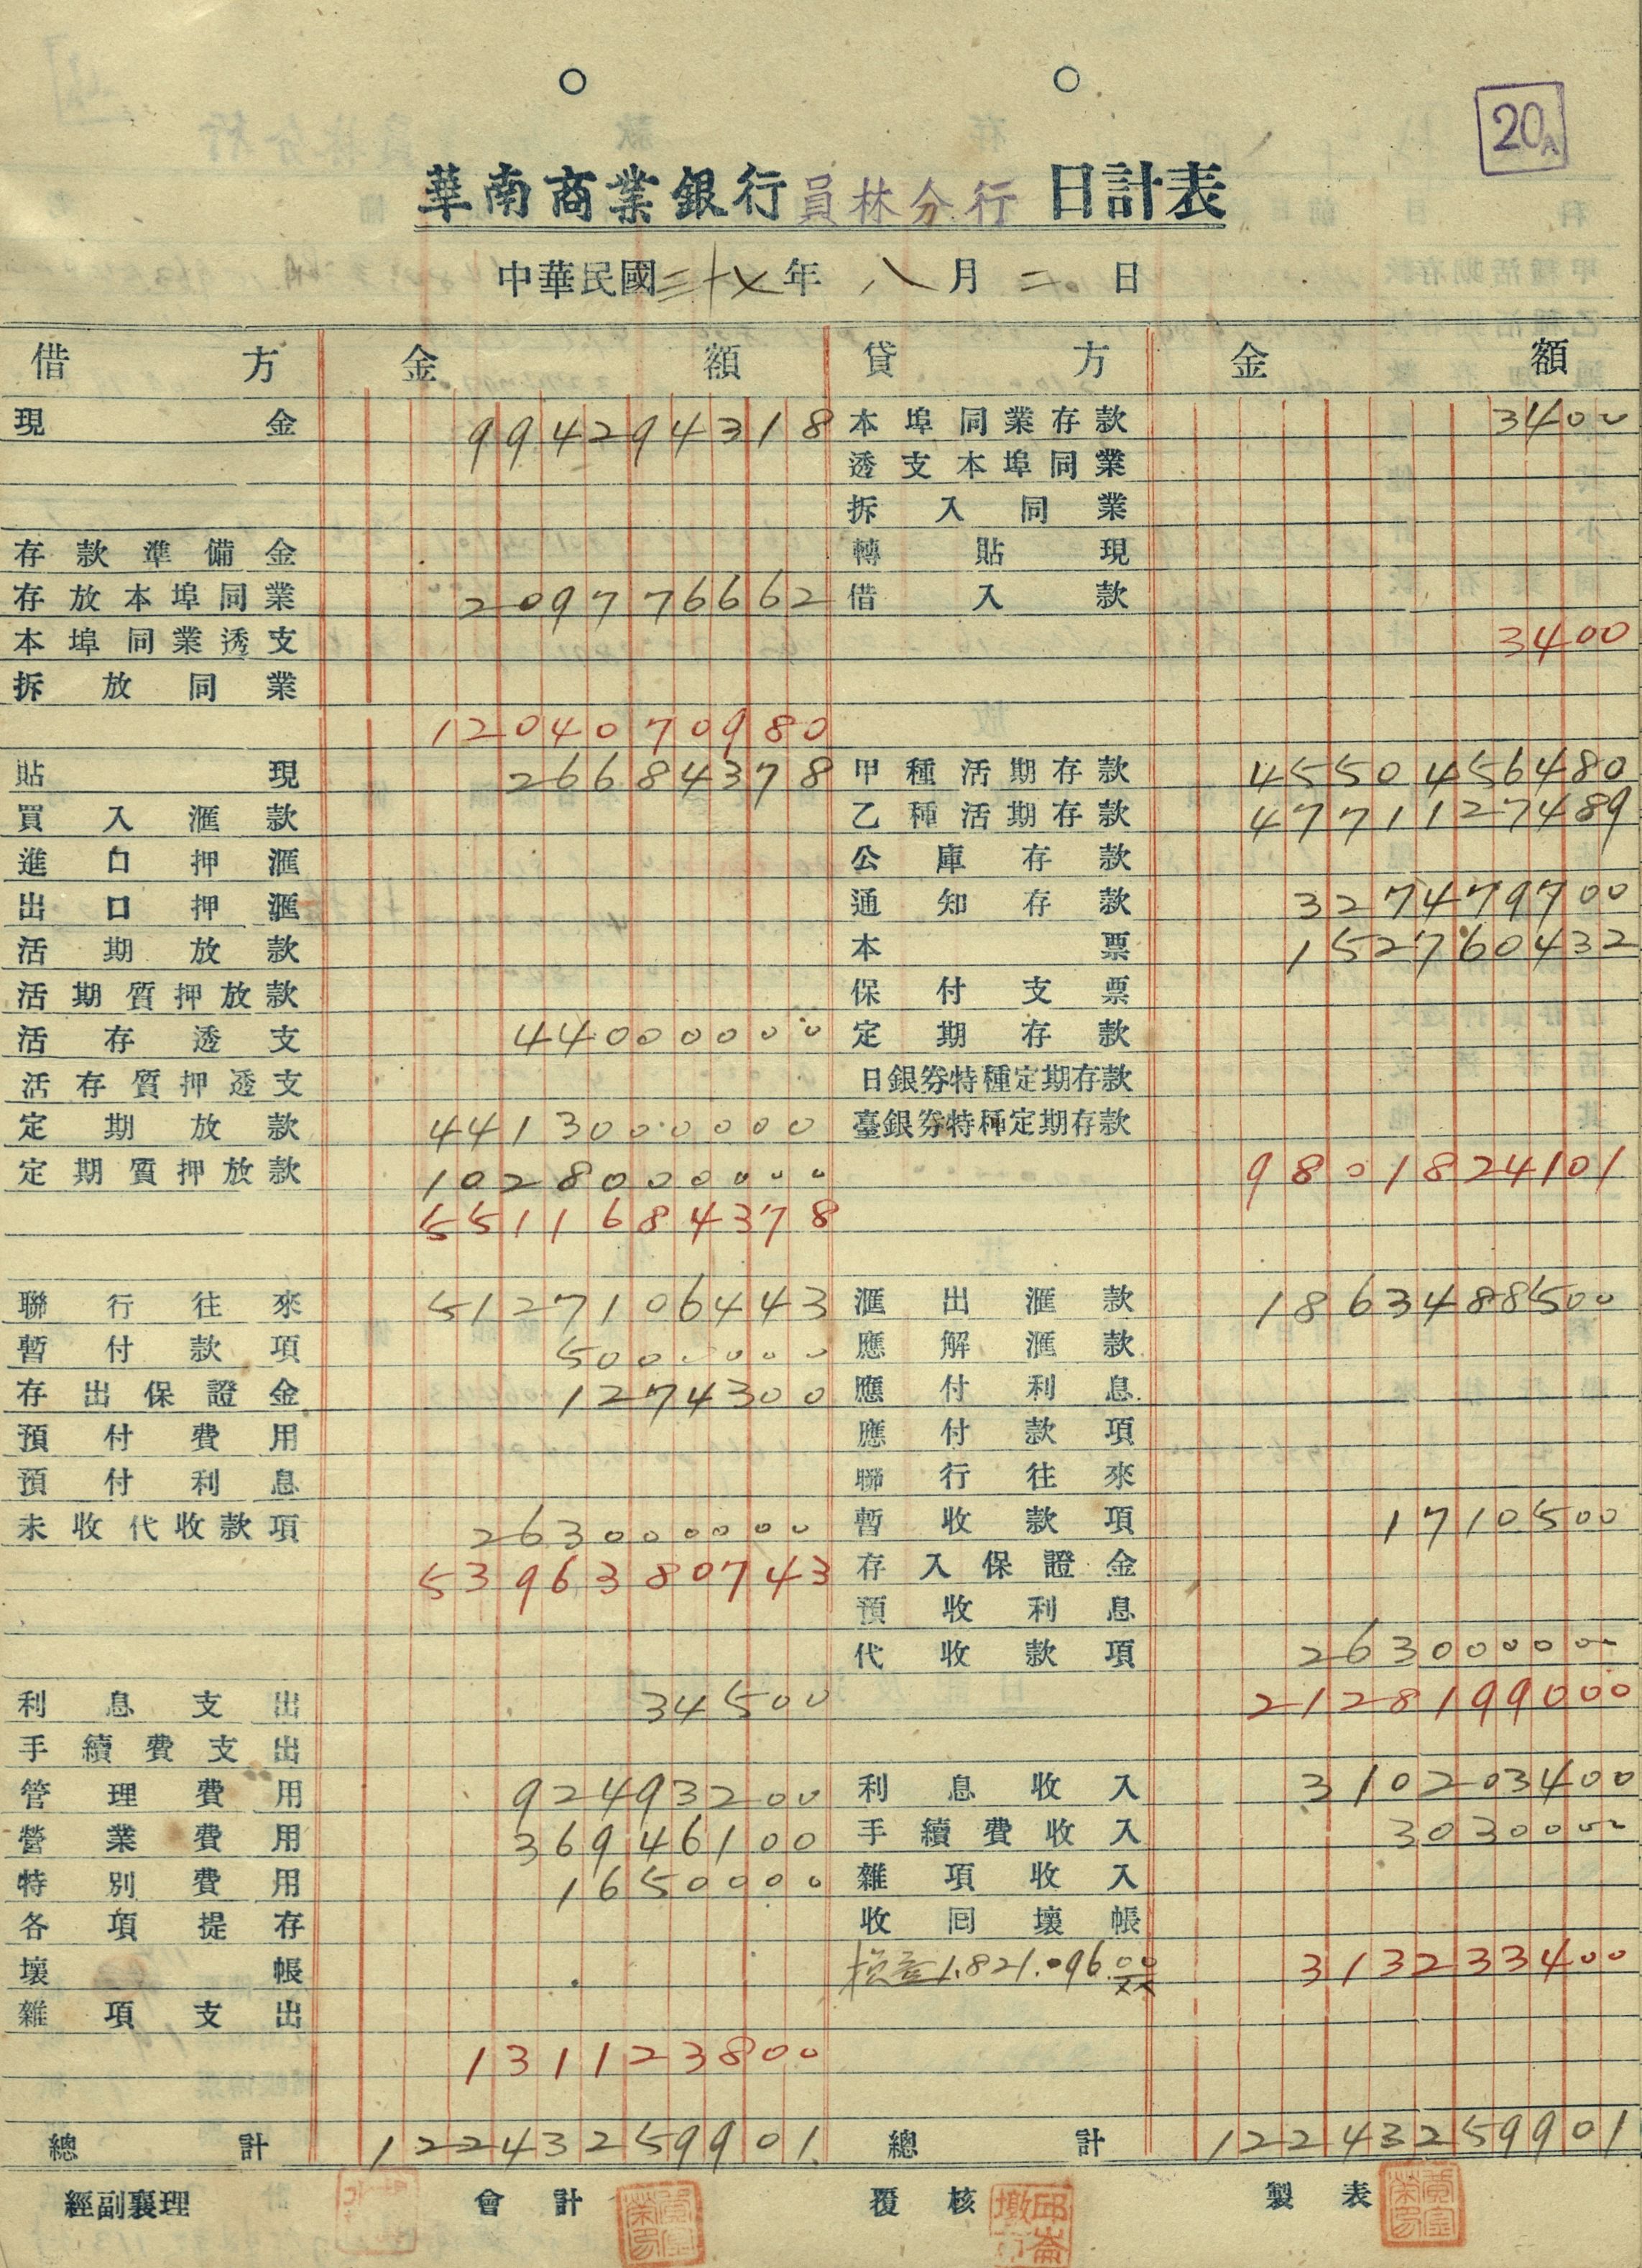 20A
華南商業銀行員林分行 日計表
中華民國三十七年八月二日
借方 金額 貸方 金額
現金 994294318 本埠同業存款 3400
透支本埠同業
拆入同業
存款準備金 轉貼現
存放本埠同業 209776662 借入款
本埠同業透支 3400
拆放同業
1204070980
貼現 26684378 甲種活期存款 4550456480
買入滙款 乙種活期存款 4771127489
進口押滙 公庫存款
出口押滙 通知存款 327479700
活期放款 本票 152760432
活期質押放款 保付支票
活存透支 44000000 定期存款
活存質押透支 日銀券特種定期存款
定期放款 4413000000 臺銀券特種定期存款
定期質押放款 1028000000 9801824101
5511684378
聯行往來 5127106443 滙出滙款 1863488500
暫付款項 5000000 應解滙款
存出保證金 1274300 應付利息
預付費用 應付款項
預付利息 聯行往來
未收代收款項 263000000 暫收款項 1710500
5396380743 存入保證金
預收利息
代收款項 263000000
利息支出 34500 2128199000
手續費支出
管理費用 92493200 利息收入 310203400
營業費用 36946100 手續費收入 3030000
特別費用 1650000 雜項收入
各項提存 收囘壞帳
壞帳 損益1.821.096.00 313233400
雜項支出
131123800
總計 12243259901 總計 12243259901
經副襄理 會計 覆核 製表